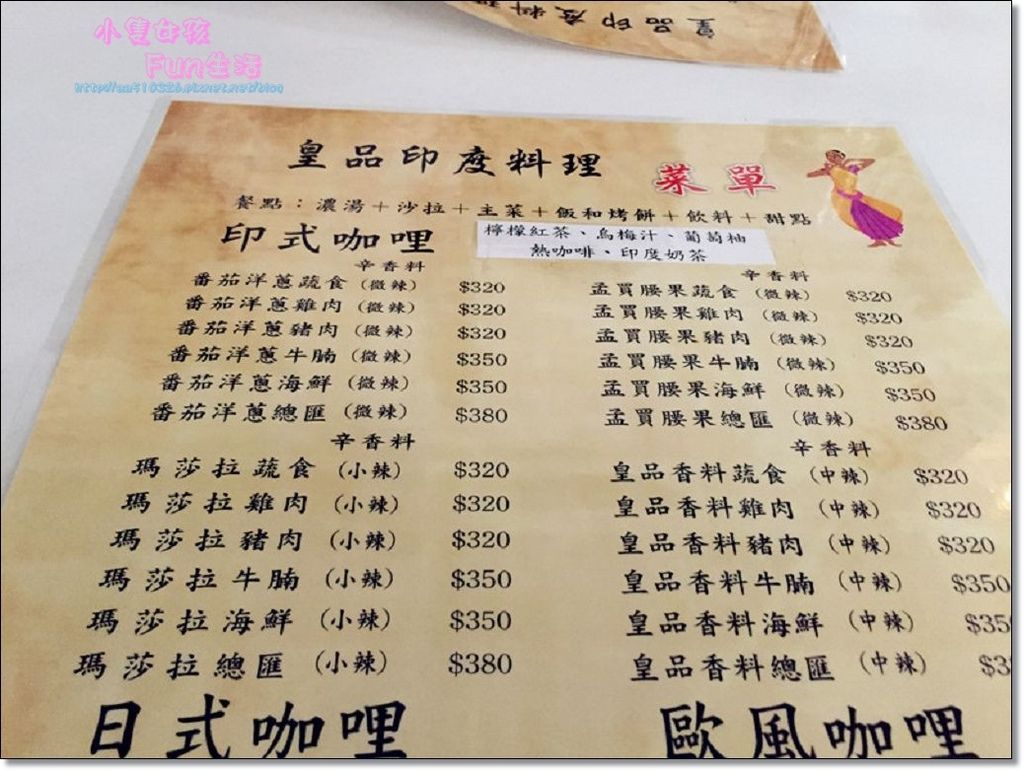 皇品印度料理
小隻女孩
Fun生活
http://aa510326.pixnet.net/blog
皇品印度料理 菜單
餐點：濃湯＋沙拉＋主菜＋飯和烤餅＋飲料＋甜點
檸檬紅茶、烏梅汁、葡萄柚
熱咖啡、印度奶茶
印式咖哩
辛香料
番茄洋蔥蔬食 (微辣) $320
番茄洋蔥雞肉 (微辣) $320
番茄洋蔥豬肉 (微辣) $320
番茄洋蔥牛腩 (微辣) $350
番茄洋蔥海鮮 (微辣) $350
番茄洋蔥總匯 (微辣) $380
辛香料
瑪莎拉蔬食 (小辣) $320
瑪莎拉雞肉 (小辣) $320
瑪莎拉豬肉 (小辣) $320
瑪莎拉牛腩 (小辣) $350
瑪莎拉海鮮 (小辣) $350
瑪莎拉總匯 (小辣) $380
日式咖哩
辛香料
孟買腰果蔬食 (微辣) $320
孟買腰果雞肉 (微辣) $320
孟買腰果豬肉 (微辣) $320
孟買腰果牛腩 (微辣) $350
孟買腰果海鮮 (微辣) $350
孟買腰果總匯 (微辣) $380
辛香料
皇品香料蔬食 (中辣) $320
皇品香料雞肉 (中辣) $320
皇品香料豬肉 (中辣) $320
皇品香料牛腩 (中辣) $350
皇品香料海鮮 (中辣) $35
皇品香料總匯 (中辣) $3
歐風咖哩